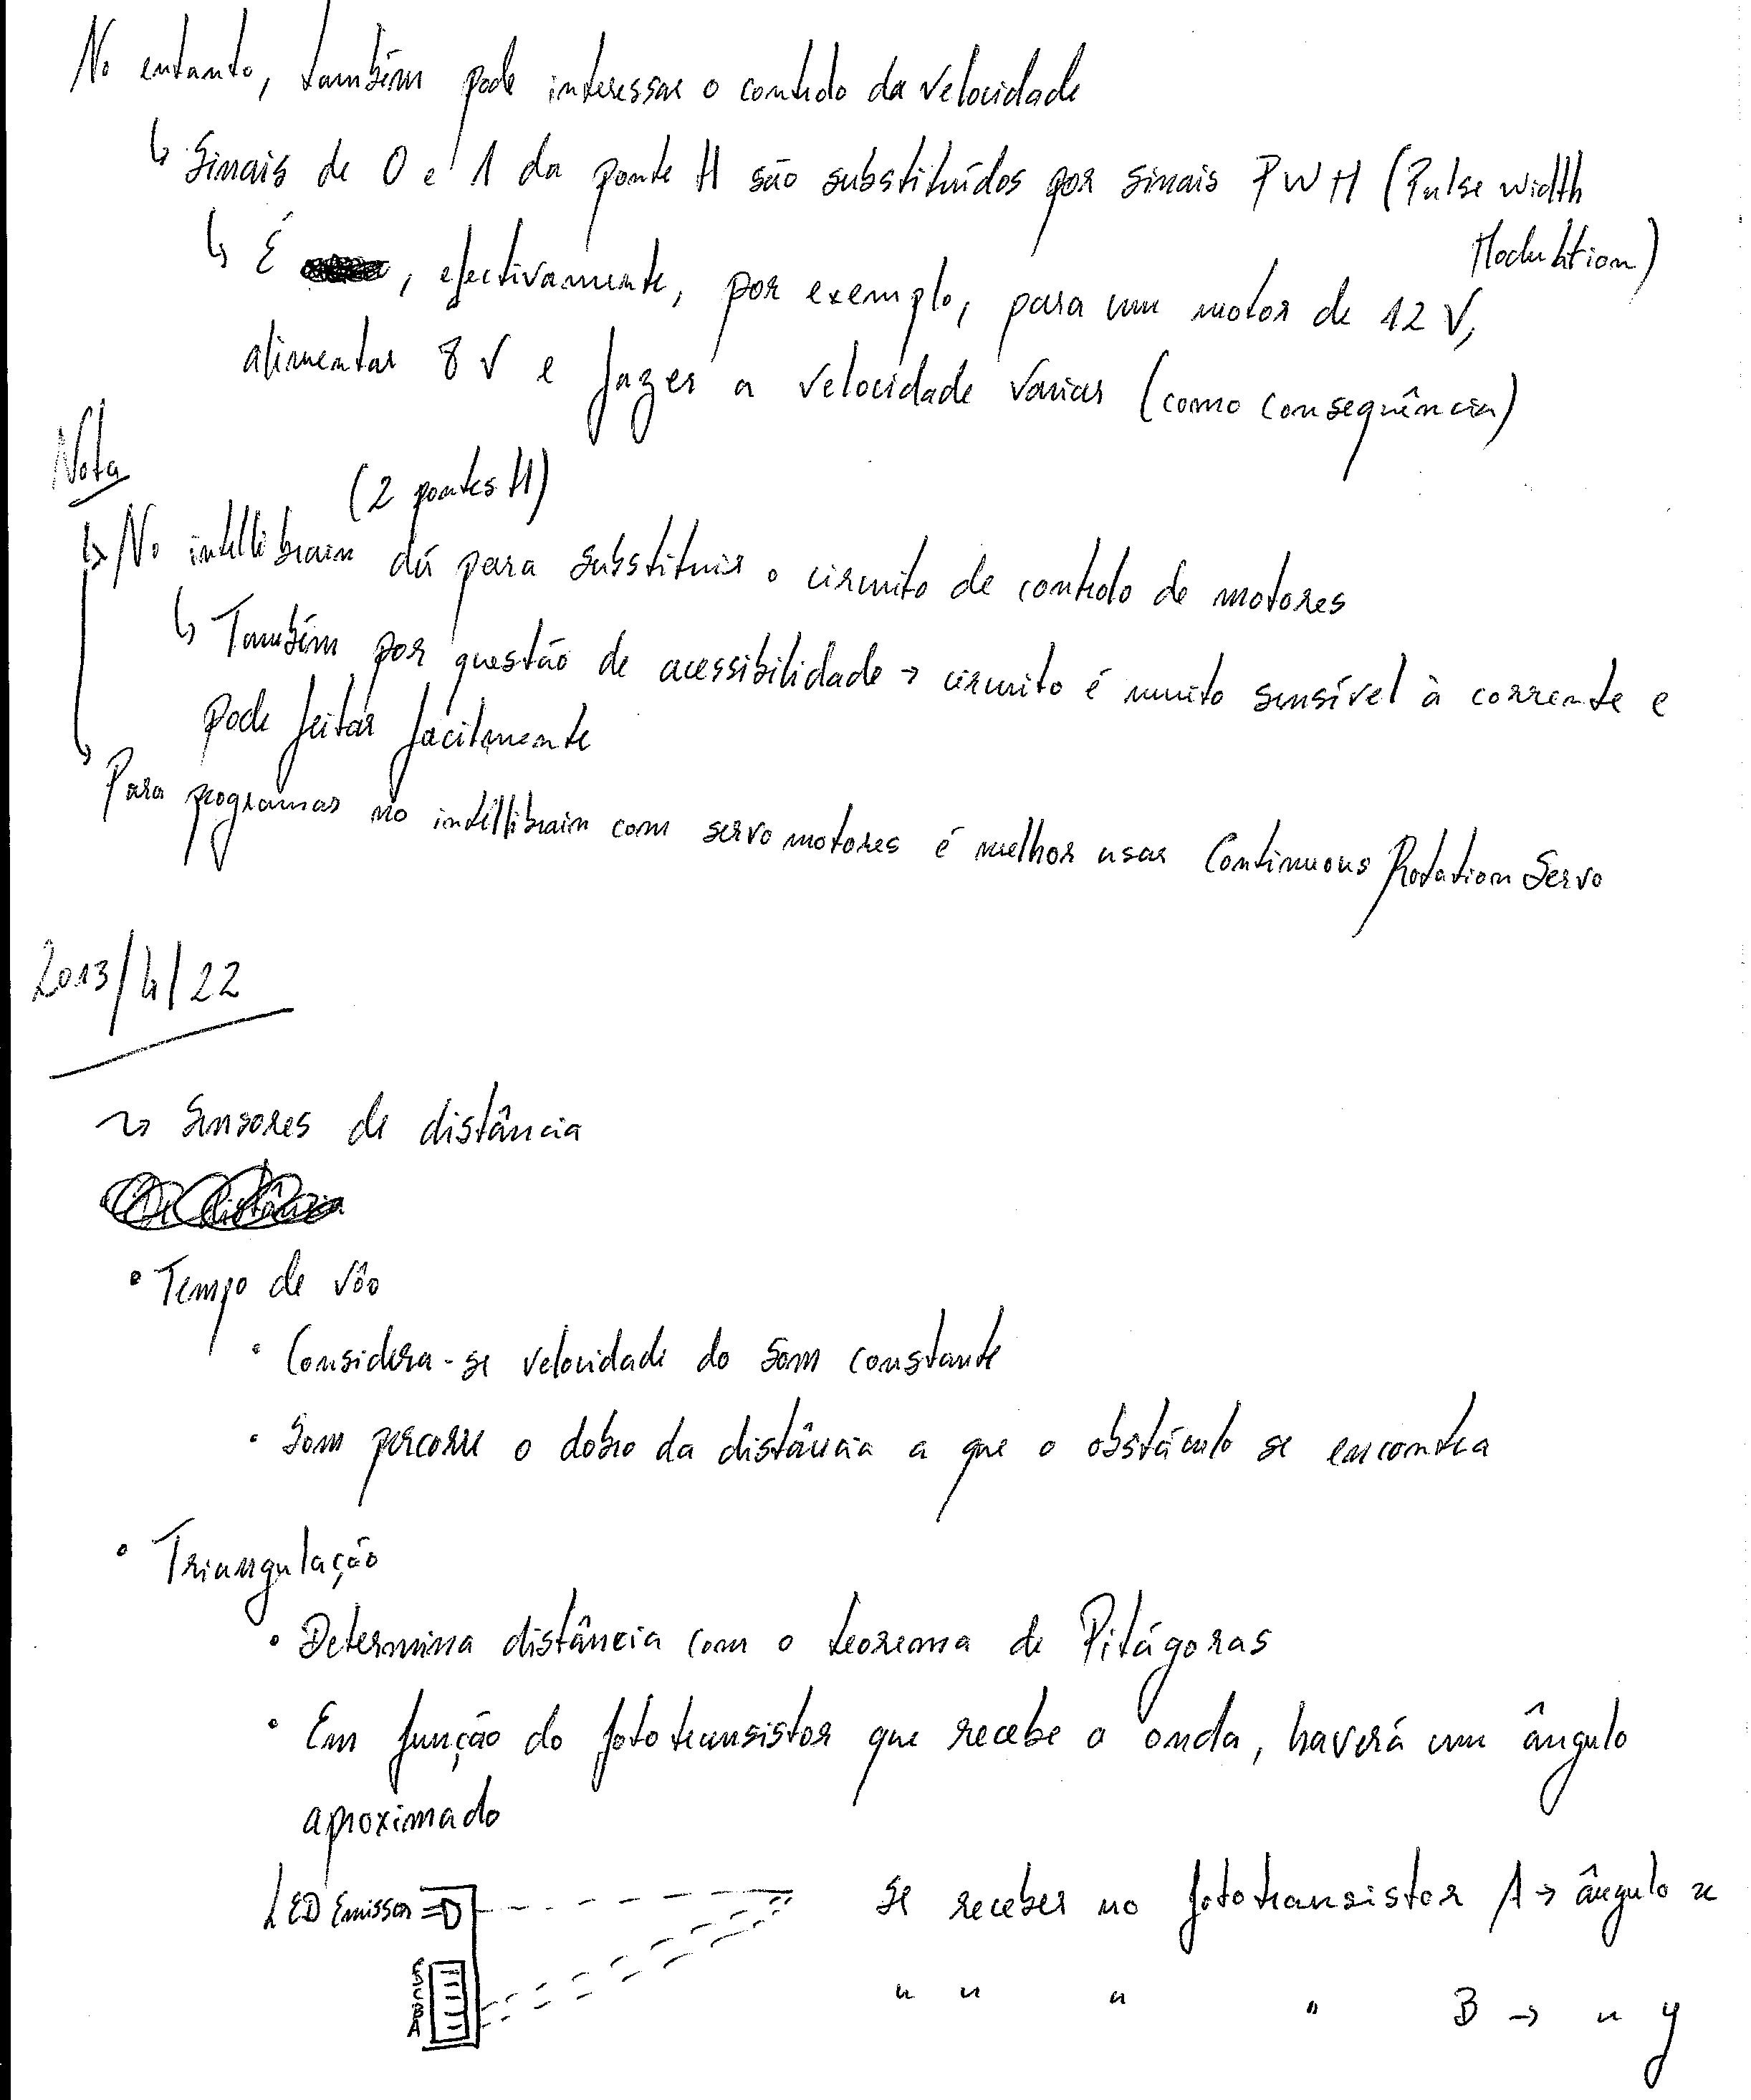 No entanto, também pode interessar o controlo da velocidade
↳ Sinais de 0 e 1 da ponte H são substituídos por sinais PWM (Pulse Width
Modulation)
↳ É , efectivamente, por exemplo, para um motor de 12 V,
alimentar 8 V e fazer a velocidade variar (como consequência)
Nota
(2 pontes H)
↳ No intellibrain dá para substituir o circuito de controlo de motores
↳ Também por questão de acessibilidade → circuito é muito sensível à corrente e
pode feitar facilmente
↳ Para programar no intellibrain com servo motores é melhor usar Continuous Rotation Servo
2013/4/22
↝ Sensores de distância
• Tempo de vôo
• Considera-se velocidade do som constante
• Som percorre o dobro da distância a que o obstáculo se encontra
• Triangulação
• Determina distância com o teorema de Pitágoras
• Em função do fototransistor que recebe a onda, haverá um ângulo
aproximado
LED Emissor
Se receber no fototransistor A → ângulo x
E
D
C
B
A
" " " " B → " y